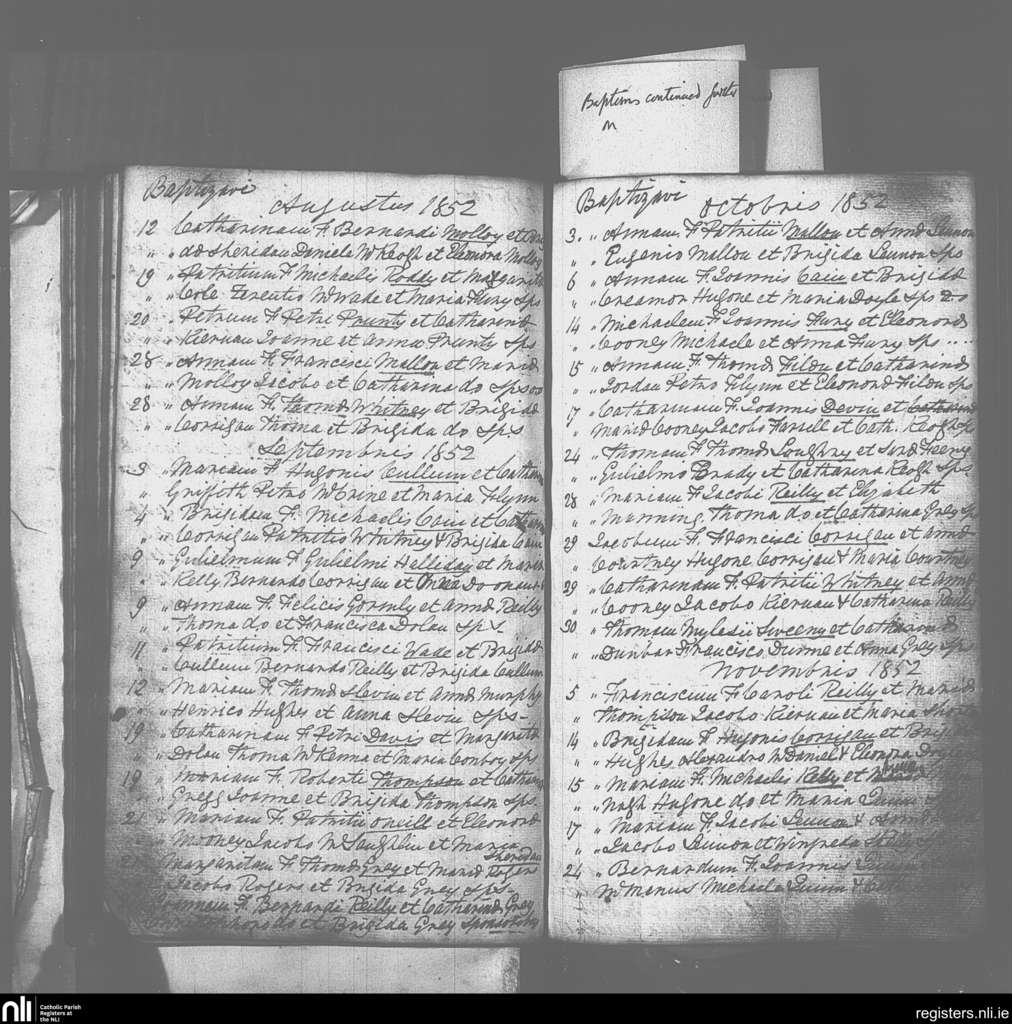 Baptisms continued further
on
Baptizavi
Augustus 1852
12 Catharinam F. Bernardi Molloy et
" " do Sheridan Daniele McKeogh et Eleonora Molloy
19 " Patritium F. Michaelis Roddy et Margarita
" " Cole Terentio McWade et Maria Fury Sps
20 " Petrum F. Petri Prunty et Catharina
" " Kiernan Joanne et Anna Prunty Sps
28 " Annam F. Francisci Mallon et Maria
" " Molloy Jacobo et Catharina do Sps
28 " Annam F. Thoma Whitney et Brigida
" " Corrigan Thoma et Brigida do Sps
Septembris 1852
3 " Mariam F. Hugonis Cullum et Cathar
" " Griffith Petro McCrine et Maria Flynn
4 " Brigidam F. Michaelis Cain et Cathar
" " Corrigan Patritio Whitney & Brigida Cain
9 " Gulielmum F. Gulielmi Halliday et Maria
" " Kelly Bernardo Corrigan et Do
9 " Annam F. Felicis Gormly et Anna Reilly
" " Thoma do et Francisca Dolan Sps
11 " Patritium F. Francisci Wade et Brigida
" " Cullum Bernardo Reilly et Brigida Cullum
12 " Mariam F. Thoma Slevin et Anna Murphy
" " Henrico Hughes et Anna Slevin Sps
19 " Catharinam F. Petri Davis et Margarita
" " Dolan Thoma McKenna et Maria Conboy Sps
19 " Mariam F. Roberti Thompson et Cathar
" " Gregg Joanne et Brigida Thompson Sps.
21 " Mariam F. Patritii oneill et Eleonora
" " Mooney Jacobo McLaughlin et Maria Sheridan
Margaritam F. Thoma Grey et Maria Rogers
Jacobo Rogers et Brigida Grey Sps
Annam F. Bernardi Reilly et Catharina Grey
do et Brigida Grey Sponsoribus
Baptizavi
Octobris 1852
3. " Annam F. Patritii Mallon et Anna Lennon
" " Eugenio Mallon et Brigida Lennon Sps
6 " Annam F. Joannis Cain et Brigida
" " Creamor Hugone et Maria Doyle Sps
14 " Michaelem F. Joannis Fury et Eleonora
" " Cooney Michaele et Anna Fury Sps
15 " Annam F. Thoma Fildu et Catharina
" " Jordan Petro Flynn et Eleonora Fildu Sps
17 " Catharinam F. Joannis Devin et
" Maria Cooney Jacobo Farrell et Cath. Keogh Sp
24 " Thomam F. Thoma Loughry et Feeny
" " Gulielmo Brady et Catharina Keogh Sps
28 " Mariam F. Jacobi Reilly et Elizabeth
" " Manning Thoma do et Catharina Grey Sp
29 Jacobum F. Francisci Corrigan et Anna
" Courtney Hugone Corrigan & Maria Courtney
29 " Catharinam F. Patritii Whitney et Anna
" " Cooney Jacobo Kiernan & Catharina Reilly
30 " Thomam Mylesii Sweeny et Catharina
" " Dunbar Francisco Dunne et Anna Grey Sps
Novembris 1852
5 " Franciscum F. Caroli Reilly et Maria
" Thompson Jacobo Kiernan et Maria
14 " Brigidam F. Hugonis Corrigan et Brig
" " Hughes Alexandro McDaniel & Eleonora
15 " Mariam F. Michaelis Kelly et
" " Hugone do et Maria Quinn
17 " Mariam F. Jacobi Lennon &
" " Jacobo Lennon et Winefreda
24 " Bernardum F. Joannis
" McManus Michaele Quinn &
nli
Catholic Parish
Registers at
the NLI
registers.nli.ie